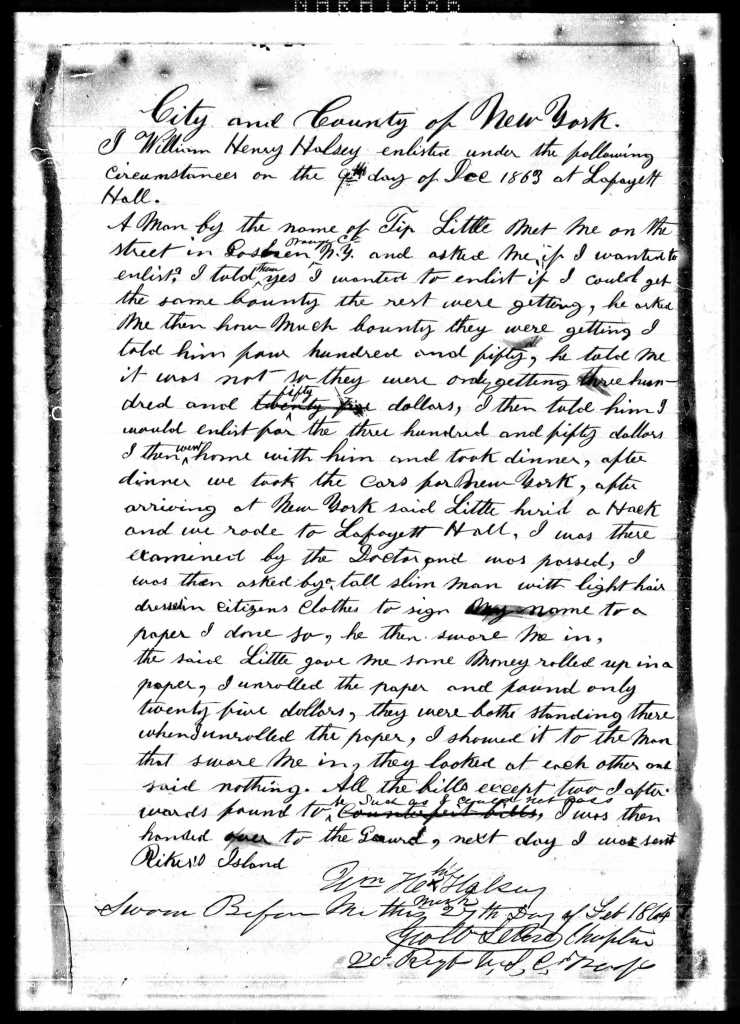 City and County of New York.
I William Henry Halsey enlisted under the following
circumstances on the 9th day of Dec 1863 at Lafayett
Hall.
A Man by the name of Tip Little Met Me on the
Orange Co
street in Goshen N.Y. and asked Me, if I wanted to
enlist? I told them yes I wanted to enlist if I could get
the same bounty the rest were getting, he asked
Me then how Much bounty they were getting I
told him four hundred and fifty, he told Me
it was not so they were only getting three hun-
fifty
dred and twenty five dollars, I then told him I
would enlist for the three hundred and fifty dollars
I then went home with him and took dinner, after
dinner we took the cars for New York, after
arriving at New York said Little hired a Hack
and we rode to Lafayett Hall, I was there
examined by the Doctor, and was passed, I
was then asked by a tall slim man with light hair
dressed in citizens clothes to sign my name to a
paper I done so, he then swore Me in,
the said Little gave me some Money rolled up in a
paper, I unrolled the paper and found only
twenty five dollars, they were bothe standing there
when I unrolled the paper, I showed it to the Man
that swore Me in, they looked at each other and
said nothing. All the bills except two I after-
be Such as I could not pass
wards found to Counterfeit bills, I was then
handed over to the Guard, next day I was sent
Riker's Island
his
Wm He x Halsey
mark
Sworn Before Me this 27th Day of Feb 1864
Chaplin
20 Regt U.S. C Troops